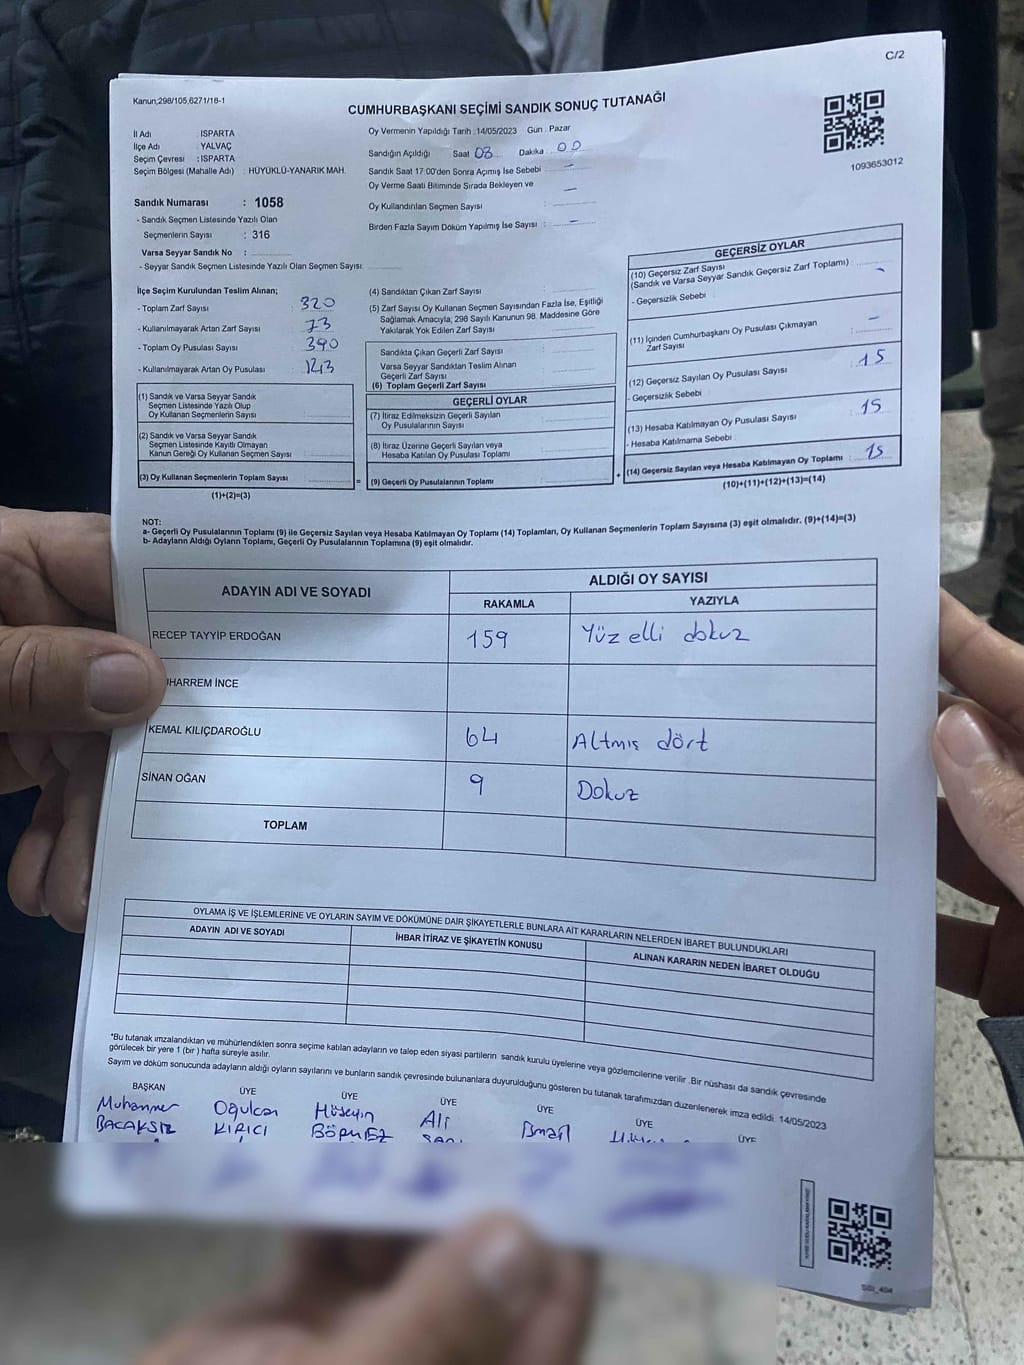 C/2
Kanun;298/105,6271/18-1
CUMHURBAŞKANI SEÇİMİ SANDIK SONUÇ TUTANAĞI
1093653012
İl Adı : ISPARTA
İlçe Adı : YALVAÇ
Seçim Çevresi : ISPARTA
Seçim Bölgesi (Mahalle Adı) : HÜYÜKLÜ-YANARIK MAH.
Sandık Numarası : 1058
- Sandık Seçmen Listesinde Yazılı Olan
Seçmenlerin Sayısı : 316
Varsa Seyyar Sandık No :
- Seyyar Sandık Seçmen Listesinde Yazılı Olan Seçmen Sayısı:
Oy Vermenin Yapıldığı Tarih :14/05/2023 Gün : Pazar
Sandığın Açıldığı Saat 08 Dakika 00
Sandık Saat 17:00'den Sonra Açımış İse Sebebi —
Oy Verme Saati Bitiminde Sırada Bekleyen ve
Oy Kullandırılan Seçmen Sayısı : —
Birden Fazla Sayım Döküm Yapılmış İse Sayısı : —
İlçe Seçim Kurulundan Teslim Alınan;
- Toplam Zarf Sayısı : 320
- Kullanılmayarak Artan Zarf Sayısı : 73
- Toplam Oy Pusulası Sayısı : 390
- Kullanılmayarak Artan Oy Pusulası : 143
(1) Sandık ve Varsa Seyyar Sandık
Seçmen Listesinde Yazılı Olup
Oy Kullanan Seçmenlerin Sayısı :
(2) Sandık ve Varsa Seyyar Sandık
Seçmen Listesinde Kayıtlı Olmayan
Kanun Gereği Oy Kullanan Seçmen Sayısı :
(3) Oy Kullanan Seçmenlerin Toplam Sayısı :
(1)+(2)=(3)
(4) Sandıktan Çıkan Zarf Sayısı :
(5) Zarf Sayısı Oy Kullanan Seçmen Sayısından Fazla İse, Eşitliği
Sağlamak Amacıyla, 298 Sayılı Kanunun 98. Maddesine Göre
Yakılarak Yok Edilen Zarf Sayısı :
Sandıkta Çıkan Geçerli Zarf Sayısı :
Varsa Seyyar Sandıktan Teslim Alınan
Geçerli Zarf Sayısı :
(6) Toplam Geçerli Zarf Sayısı :
GEÇERLİ OYLAR
(7) İtiraz Edilmeksizin Geçerli Sayılan
Oy Pusulalarının Sayısı :
(8) İtiraz Üzerine Geçerli Sayılan veya
Hesaba Katılan Oy Pusulası Toplamı :
= (9) Geçerli Oy Pusulalarının Toplamı :
GEÇERSİZ OYLAR
(10) Geçersiz Zarf Sayısı
(Sandık ve Varsa Seyyar Sandık Geçersiz Zarf Toplamı) : —
- Geçersizlik Sebebi :
(11) İçinden Cumhurbaşkanı Oy Pusulası Çıkmayan
Zarf Sayısı : —
(12) Geçersiz Sayılan Oy Pusulası Sayısı : 15
- Geçersizlik Sebebi :
(13) Hesaba Katılmayan Oy Pusulası Sayısı : 15
- Hesaba Katılmama Sebebi :
+ (14) Geçersiz Sayılan veya Hesaba Katılmayan Oy Toplamı : 15
(10)+(11)+(12)+(13)=(14)
NOT:
a- Geçerli Oy Pusulalarının Toplamı (9) ile Geçersiz Sayılan veya Hesaba Katılmayan Oy Toplamı (14) Toplamları, Oy Kullanan Seçmenlerin Toplam Sayısına (3) eşit olmalıdır. (9)+(14)=(3)
b- Adayların Aldığı Oyların Toplamı, Geçerli Oy Pusulalarının Toplamına (9) eşit olmalıdır.
ADAYIN ADI VE SOYADI
ALDIĞI OY SAYISI
RAKAMLA YAZIYLA
RECEP TAYYİP ERDOĞAN 159 Yüz elli dokuz
HARREM İNCE
KEMAL KILIÇDAROĞLU 64 Altmış dört
SİNAN OĞAN 9 Dokuz
TOPLAM
OYLAMA İŞ VE İŞLEMLERİNE VE OYLARIN SAYIM VE DÖKÜMÜNE DAİR ŞİKAYETLERLE BUNLARA AİT KARARLARIN NELERDEN İBARET BULUNDUKLARI
ADAYIN ADI VE SOYADI İHBAR İTİRAZ VE ŞİKAYETİN KONUSU ALINAN KARARIN NEDEN İBARET OLDUĞU
*Bu tutanak imzalandıktan ve mühürlendikten sonra seçime katılan adayların ve talep eden siyasi partilerin sandık kurulu üyelerine veya gözlemcilerine verilir .Bir nüshası da sandık çevresinde
görülecek bir yere 1 (bir ) hafta süreyle asılır.
Sayım ve döküm sonucunda adayların aldığı oyların sayılarını ve bunların sandık çevresinde bulunanlara duyurulduğunu gösteren bu tutanak tarafımızdan düzenlenerek imza edildi. 14/05/2023
BAŞKAN ÜYE ÜYE ÜYE ÜYE ÜYE ÜYE
Muhammer Oğulcan Hüseyin Ali İsmail
BACAKSIZ KIRICI